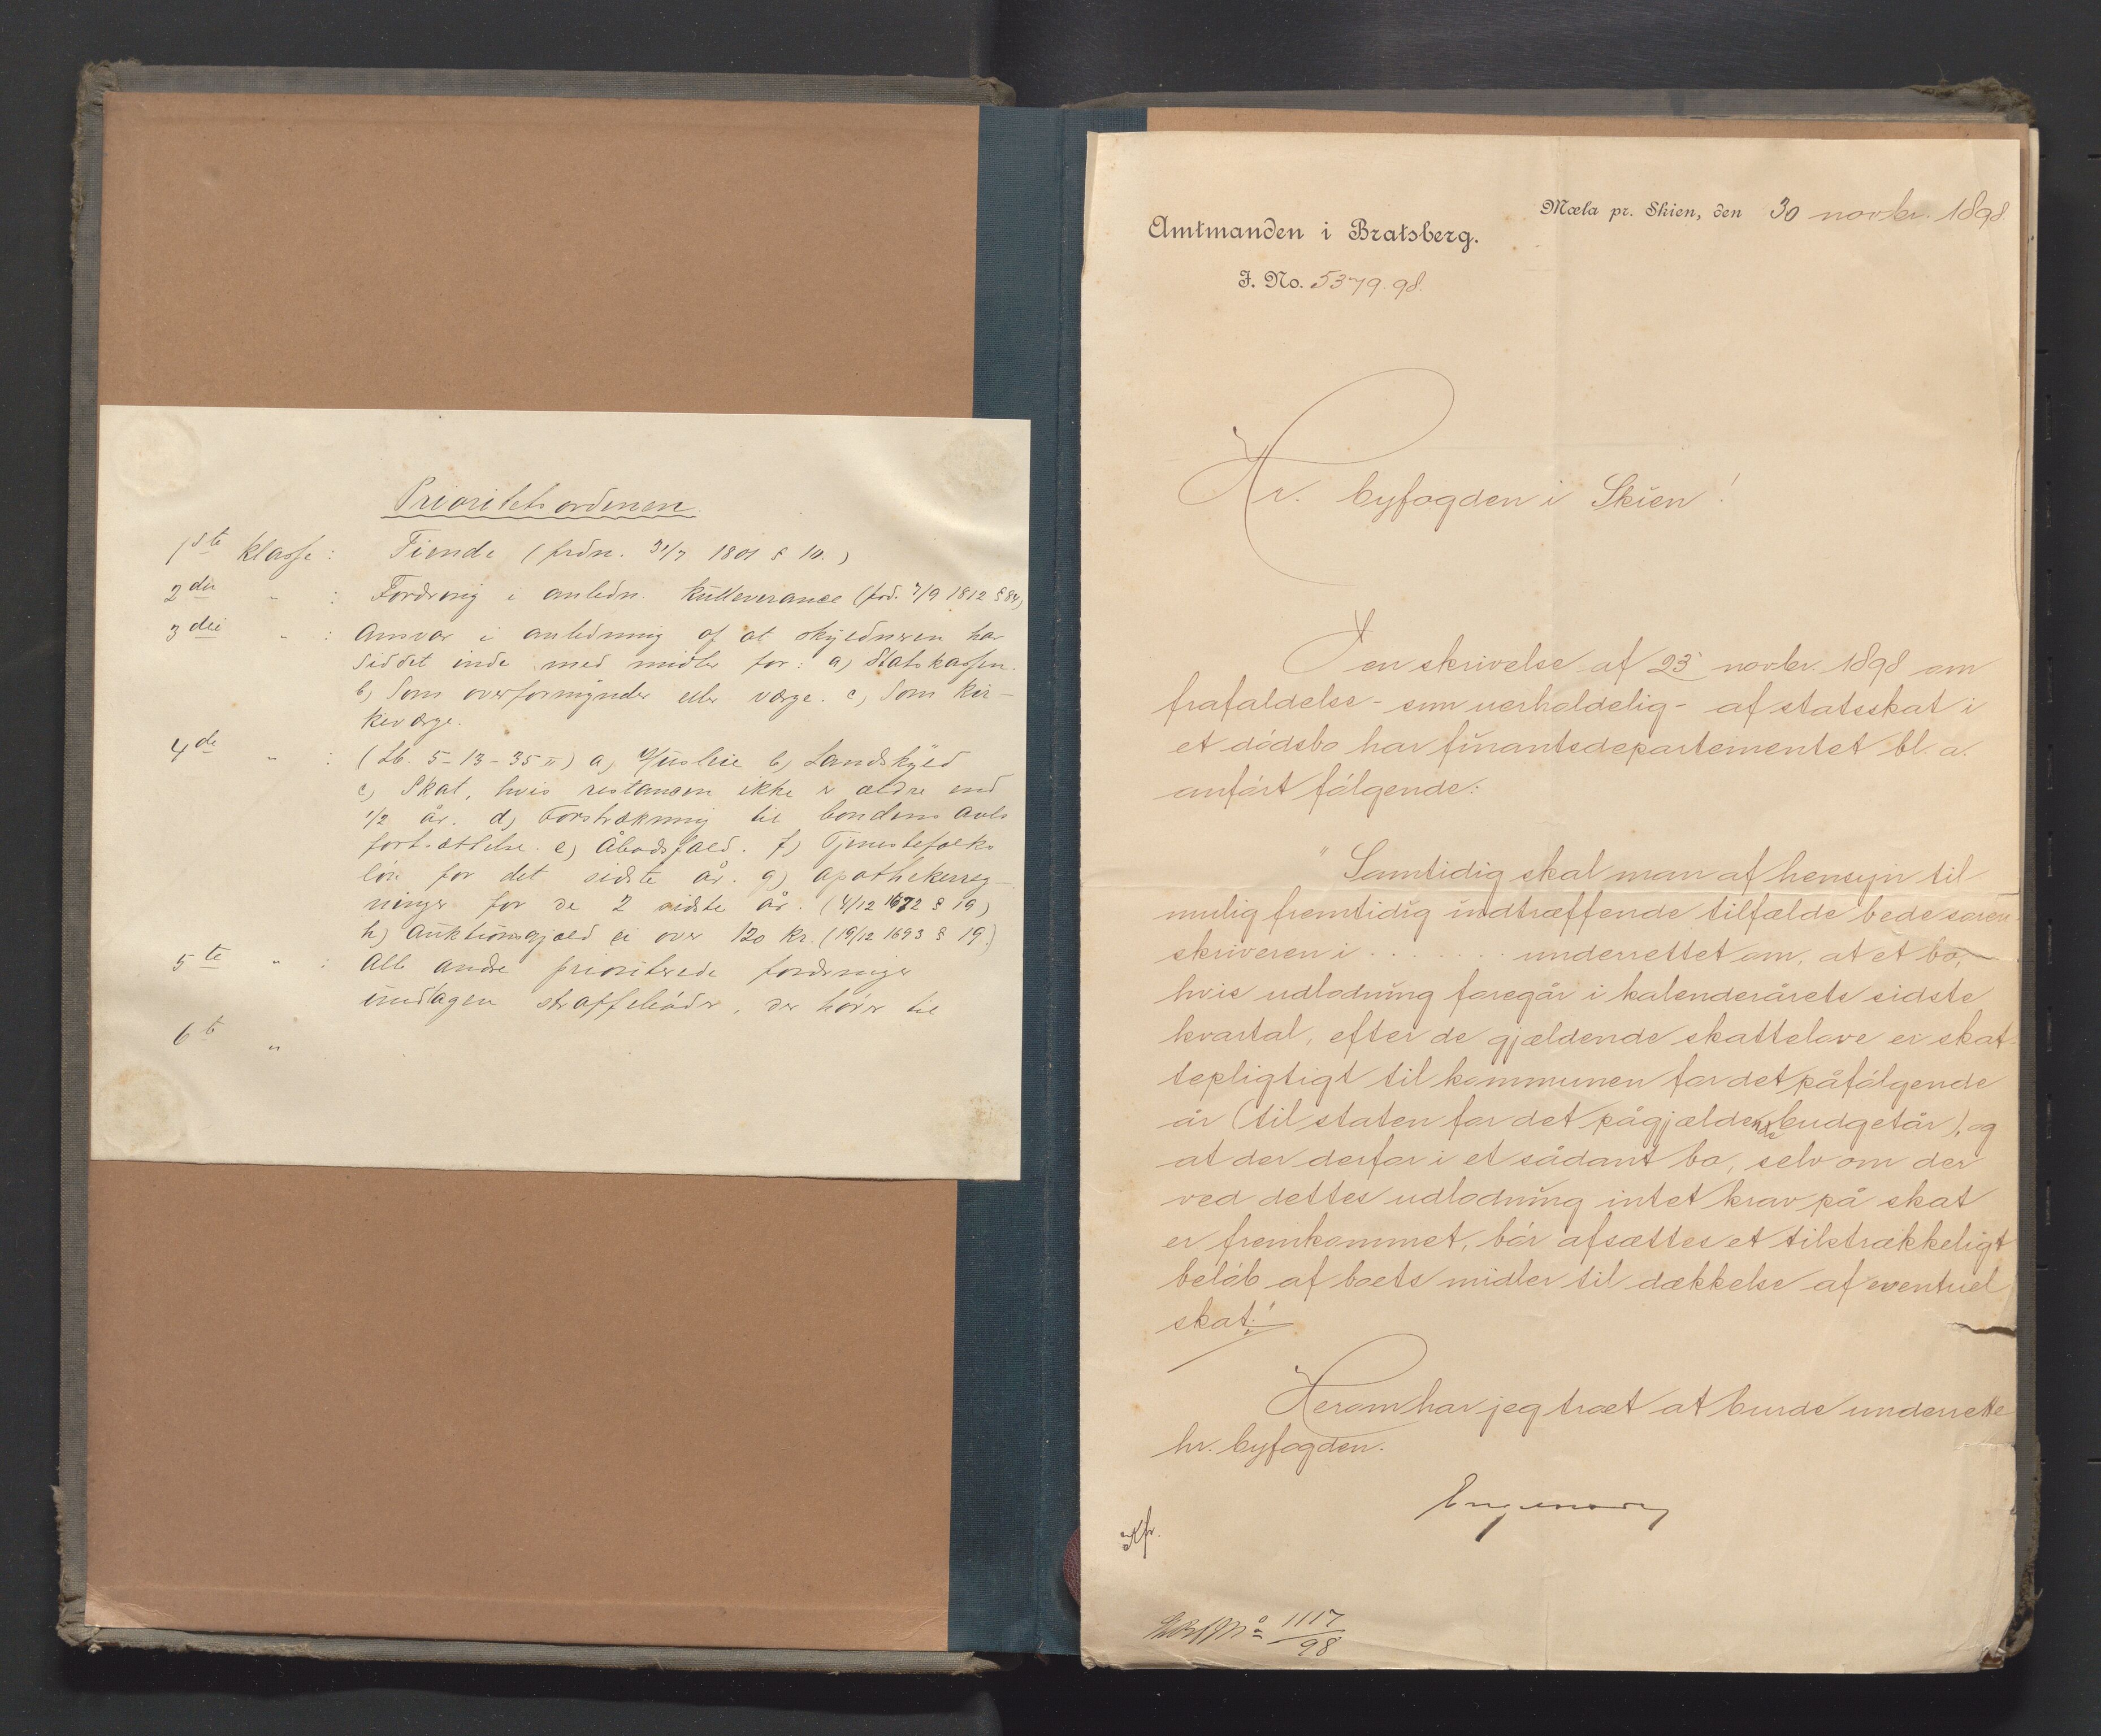 Prioritetsordenen.
1ste klasse: Tiende (frdn. 31/7 1801 § 10.)
2den " : Fordring i anledn. kulleverance (frd. 7/9 1812 § 84)
3die " : Ansvar i anledning af at skyldneren har
siddet inde med midler for: a) Statskassen.
b) Som overformynder eller værge. c) Som kir-
keværge.
4de " : (Lb. 5-13-35 II) a) Husleie b) Landskyld
c) Skat, hvis restancen ikke er ældre end
1/2 år. d) Forstrækning til bondens avls
fortsættelse. e) Åbodsfald. f) Tjenestefolks
løn for det sidste år. g) Apothekerreg-
ninger for de 2 sidste år. (4/12 1672 § 19)
h) Auktionsgjæld ei over 120 kr. (19/12 1693 § 19.)
5te " : Alle andre prioriterede fordringer
undtagen straffebøder, der hører til
6te "
Mæla pr. Skien, den 30 novbr. 1898.
Amtmanden i Bratsberg.
J. No. 5379.98.
Hr. byfogden i Skien!
I en skrivelse af 23 novbr. 1898 om
frafaldelse - som uerholdelig - af statsskat i
et dødsbo har finantsdepartementet bl. a.
anført følgende:
"Samtidig skal man af hensyn til
mulig fremtidig indtræffende tilfælde bede soren-
skriveren i . . . . . . . underrettet om, at et bo,
hvis udlodning foregår i kalenderårets sidste
kvartal, efter de gjældende skattelove er skat-
tepligtigt til kommunen for det påfølgende
år (til staten for det pågjældende budgetår), og
at der derfor i et sådant bo, selv om der
ved dettes udlodning intet krav på skat
er fremkommet, bør afsættes et tilstrækkeligt
beløb af boets midler til dækkelse af eventuel
skat."
Herom har jeg troet at burde underrette
hr. byfogden.
Kfr.
No 1117/98